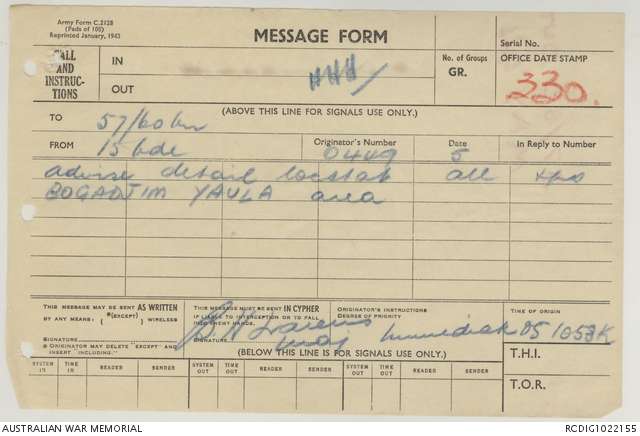 Army Form C.2128
(Pads of 100)
Reprinted January, 1943
MESSAGE FORM
Serial No.
CALL
AND
INSTRUC-
TIONS
IN
OUT
No. of Groups
GR.
OFFICE DATE STAMP
330.
(ABOVE THIS LINE FOR SIGNALS USE ONLY.)
TO 57/60 bn
FROM 15 bde Originator's Number 0449 Date 5 In Reply to Number
advise detail locstat all tps
BOGADJIM YAULA area
THIS MESSAGE MAY BE SENT AS WRITTEN
BY ANY MEANS: *(EXCEPT) ( ) WIRELESS
SIGNATURE
* ORIGINATOR MAY DELETE "EXCEPT" AND
INSERT "INCLUDING."
THIS MESSAGE MUST BE SENT IN CYPHER
IF LIABLE TO INTERCEPTION OR TO FALL
INTO ENEMY HANDS.
SIGNATURE
maj
ORIGINATOR'S INSTRUCTIONS
DEGREE OF PRIORITY
Immediate
TIME OF ORIGIN
T.H.I.
T.O.R.
(BELOW THIS LINE IS FOR SIGNALS USE ONLY.)
SYSTEM IN TIME IN READER SENDER SYSTEM OUT TIME OUT READER SENDER SYSTEM OUT TIME OUT READER SENDER
AUSTRALIAN WAR MEMORIAL
RCDIG1022155